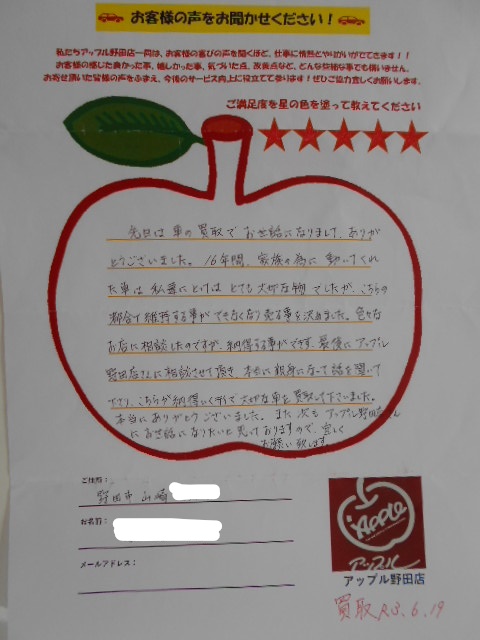 お客様の声をお聞かせください!
私たちアップル野田店一同は、お客様の喜びの声を聞くほど、仕事に情熱とやりがいがでてきます!!
お客様の感じた良かった事、嬉しかった事、気づいた点、改善点など、どんな些細な事でも構いません。
お寄せ頂いた皆様の声をふまえ、今後のサービス向上に役立てて参ります!ぜひご協力宜しくお願いします。
ご満足度を星の色を塗って教えてください
先日は車の買取でお世話になりまして、ありが
とうございました。16年間、家族の為に動いてくれ
た車は私達にとっては とても大切な物でしたが、こちらの
都合で維持する事ができなくなり売る事を決めました。色々な
お店に相談したのですが、納得する事ができず、最後にアップル
野田店さんに相談させて頂き 本当に親身になって話を聞いて
下さり、こちらが納得いく形で大切な車を買取して下さいました。
本当にありがとうございました。また次も アップル野田店さん
にお世話になりたいと思っておりますので、宜しく
お願い致します。
ご住所:
野田市山崎
お名前:
メールアドレス:
Apple
アップル
アップル野田店
買取 R3.6.19